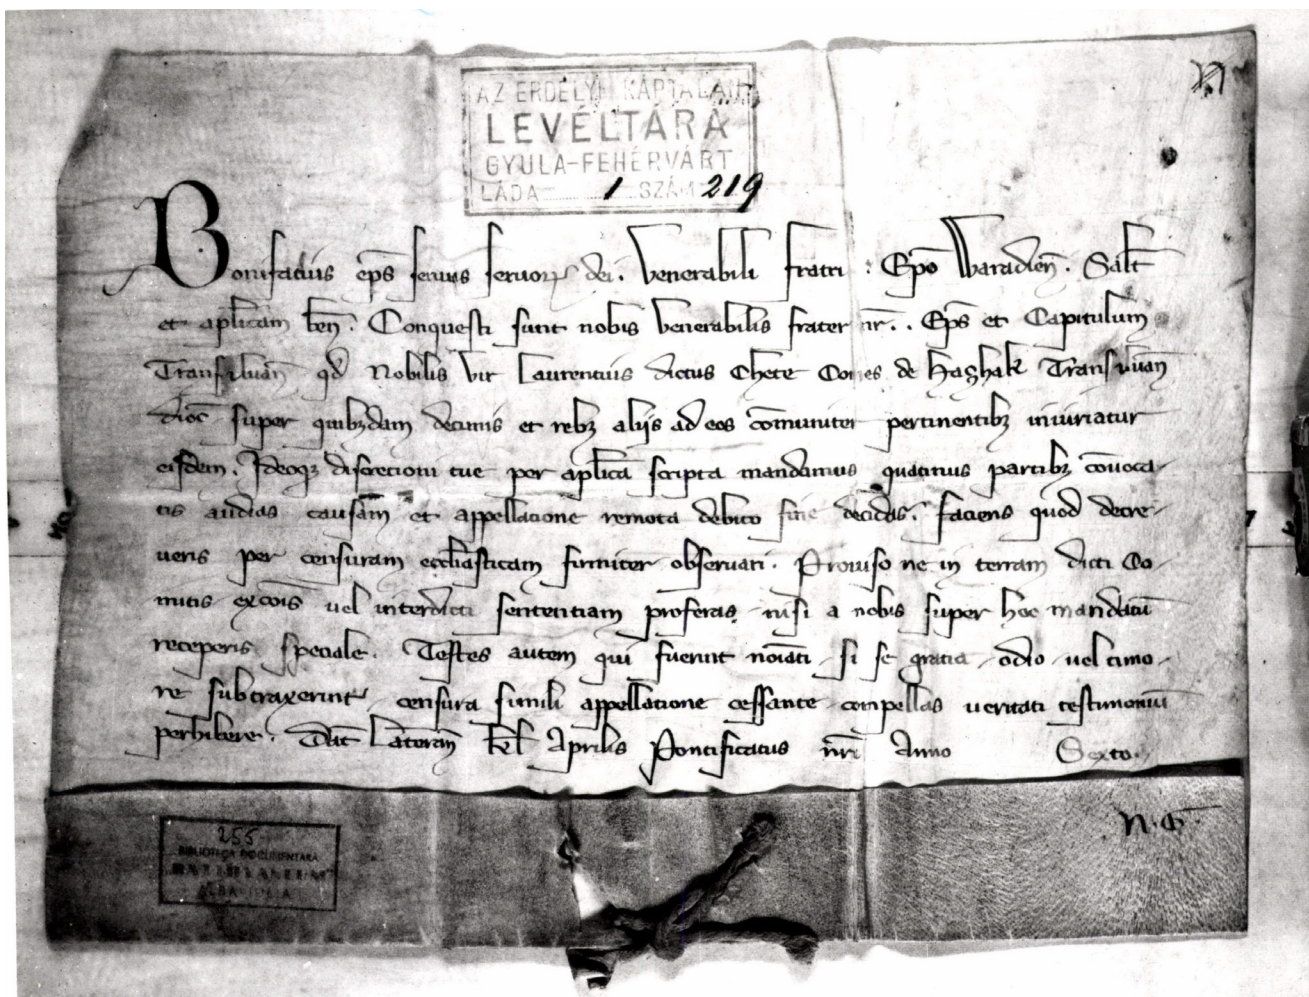 N
AZ ERDÉLYI KÁPTALAN
LEVÉLTÁRA
GYULA-FEHÉRVÁRT
LÁDA 1 SZÁM 219
Bonifatius ep̄s seruus seruoꝝ dei. Venerabili fratri : Ep̄o Waradien̄. Salt̄
et aplicam ben̄. Conquesti sunt nobis Venerabilis frater nr̄. . Ep̄s et Capitulum
Transiluan̄ qd̄ Nobilis vir Laurentius dictus Chete Comes de Haghak Transiluan̄
dioc̄ super quibꝫdam decimis et rebꝫ alijs ad eos com̄uniter pertinentibꝫ iniuriatur
eisdem. Ideoqꝫ discretioni tue per aplica scripta mandamus quatinus partibꝫ conuoca-
tis audias causam et appellatione remota debito fine decidas. faciens quod decre-
ueris per censuram ecclīasticam firmiter obseruari. Prouiso ne in terram dicti Co-
mitis excoīs uel interdicti sententiam proferas nisi a nobis super hoc mandatū
receperis speciale. Testes autem qui fuerint noīati si se gratia odio uel timo-
re subtraxerint censura simili appellatione cessante compellas ueritati testimoniū
perhibere. Dat̄ Lateran̄ kl̄ Aprilis Pontificatus nr̄i Anno Sexto.
255
BIBLIOTECA DOCUMENTARA
BATTHYANEUM
ALBA IULIA
N. G